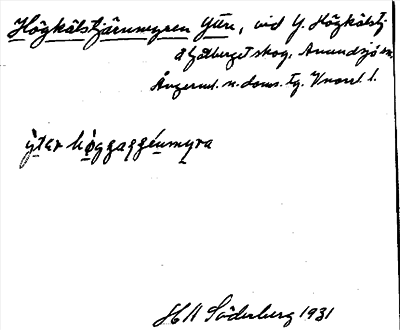 Högkälstjärnmyren Yttre, vid Y. Högkälstj.
å Gålberget skog, Anundsjö sn.
Ångerml. n. doms. tg. Vnorrl. l.
ỳtər hø̀ggaggɛ́nmỳra
H A Söderberg 1931